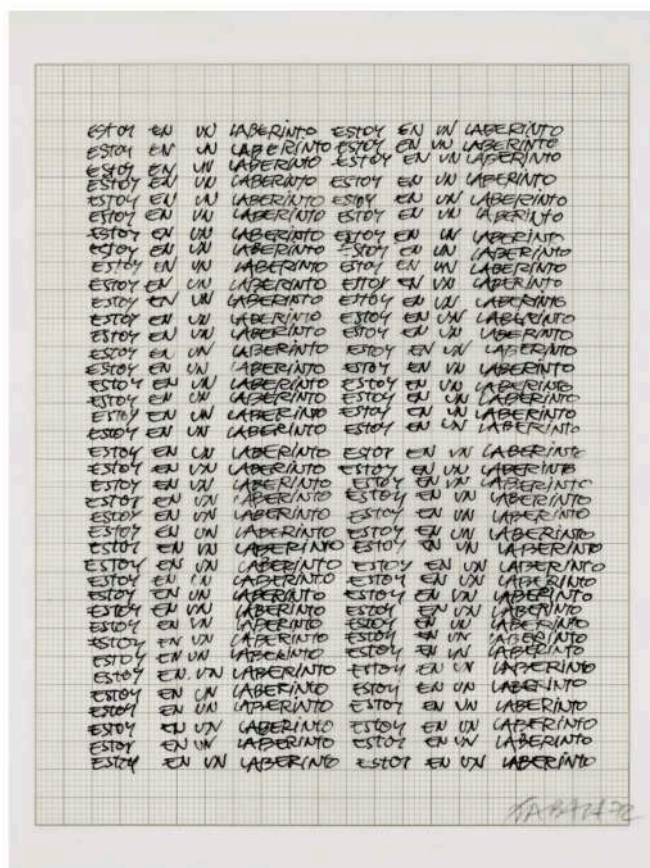 ESTOY EN UN LABERINTO ESTOY EN UN LABERINTO
ESTOY EN UN LABERINTO ESTOY EN UN LABERINTO
ESTOY EN UN LABERINTO ESTOY EN UN LABERINTO
ESTOY EN UN LABERINTO ESTOY EN UN LABERINTO
ESTOY EN UN LABERINTO ESTOY EN UN LABERINTO
ESTOY EN UN LABERINTO ESTOY EN UN LABERINTO
ESTOY EN UN LABERINTO ESTOY EN UN LABERINTO
ESTOY EN UN LABERINTO ESTOY EN UN LABERINTO
ESTOY EN UN LABERINTO ESTOY EN UN LABERINTO
ESTOY EN UN LABERINTO ESTOY EN UN LABERINTO
ESTOY EN UN LABERINTO ESTOY EN UN LABERINTO
ESTOY EN UN LABERINTO ESTOY EN UN LABERINTO
ESTOY EN UN LABERINTO ESTOY EN UN LABERINTO
ESTOY EN UN LABERINTO ESTOY EN UN LABERINTO
ESTOY EN UN LABERINTO ESTOY EN UN LABERINTO
ESTOY EN UN LABERINTO ESTOY EN UN LABERINTO
ESTOY EN UN LABERINTO ESTOY EN UN LABERINTO
ESTOY EN UN LABERINTO ESTOY EN UN LABERINTO
ESTOY EN UN LABERINTO ESTOY EN UN LABERINTO
ESTOY EN UN LABERINTO ESTOY EN UN LABERINTO
ESTOY EN UN LABERINTO ESTOY EN UN LABERINTO
ESTOY EN UN LABERINTO ESTOY EN UN LABERINTO
ESTOY EN UN LABERINTO ESTOY EN UN LABERINTO
ESTOY EN UN LABERINTO ESTOY EN UN LABERINTO
ESTOY EN UN LABERINTO ESTOY EN UN LABERINTO
ESTOY EN UN LABERINTO ESTOY EN UN LABERINTO
ESTOY EN UN LABERINTO ESTOY EN UN LABERINTO
ESTOY EN UN LABERINTO ESTOY EN UN LABERINTO
ESTOY EN UN LABERINTO ESTOY EN UN LABERINTO
ESTOY EN UN LABERINTO ESTOY EN UN LABERINTO
ESTOY EN UN LABERINTO ESTOY EN UN LABERINTO
ESTOY EN UN LABERINTO ESTOY EN UN LABERINTO
ESTOY EN UN LABERINTO ESTOY EN UN LABERINTO
ESTOY EN UN LABERINTO ESTOY EN UN LABERINTO
ESTOY EN UN LABERINTO ESTOY EN UN LABERINTO
ESTOY EN UN LABERINTO ESTOY EN UN LABERINTO
ESTOY EN UN LABERINTO ESTOY EN UN LABERINTO
ESTOY EN UN LABERINTO ESTOY EN UN LABERINTO
ESTOY EN UN LABERINTO ESTOY EN UN LABERINTO